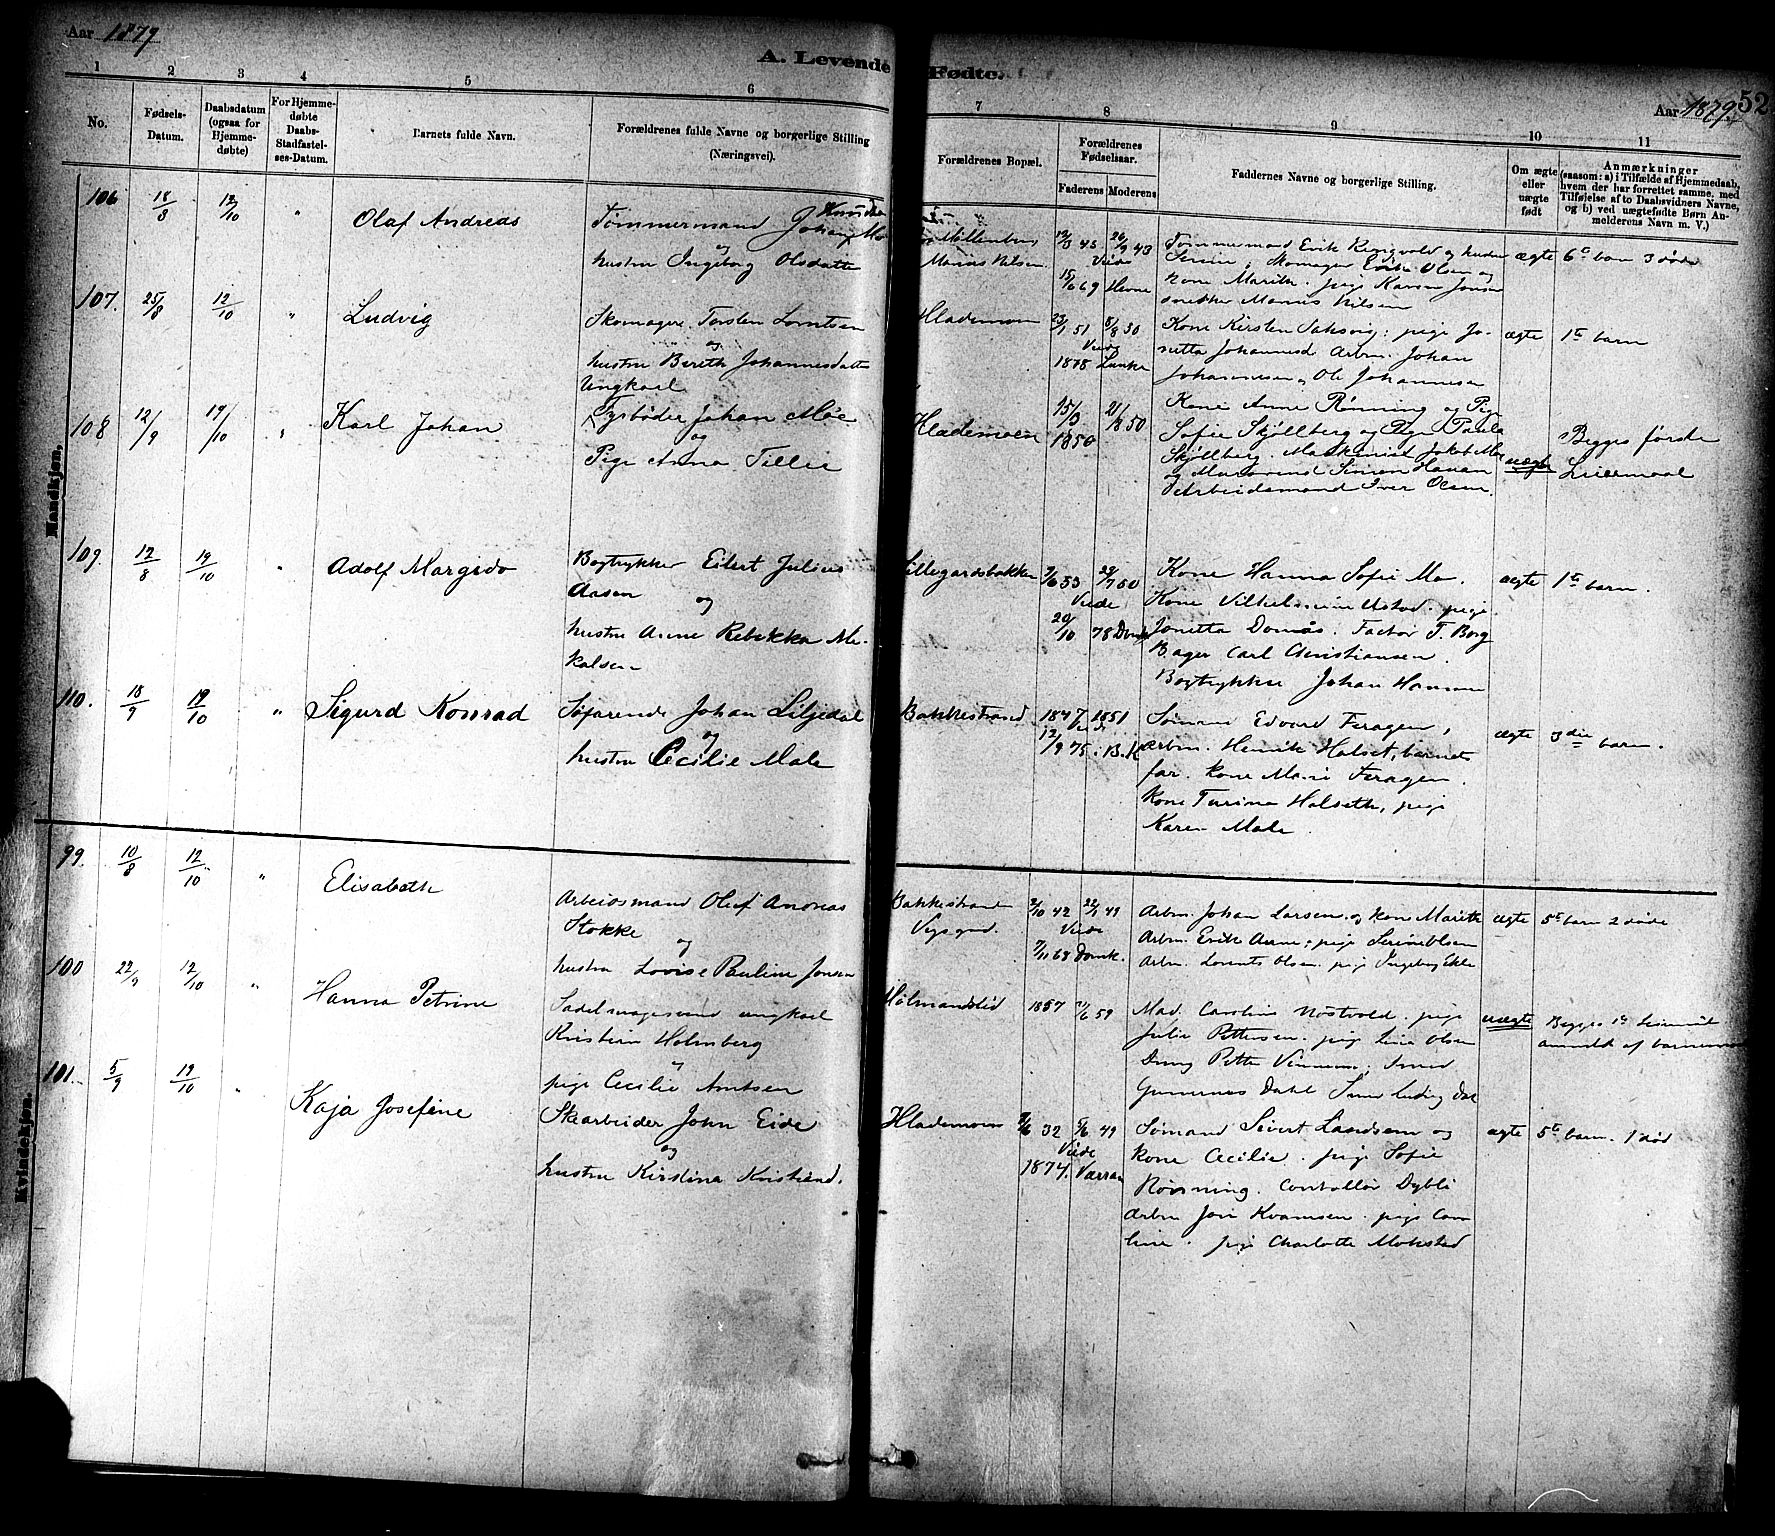 Aar 1879
A. Levende Fødte.
Aar 1879
52
1 2 3 4 5 6 7 8 9 10 11
No.
Fødsels-Datum.
Daabsdatum (ogsaa for Hjemme-døbte)
For Hjemme-døbte Daabs-Stadfæstel-ses-Datum.
Barnets fulde Navn.
Forældrenes fulde Navne og borgerlige Stilling
(Næringsvei).
Forældrenes Bopæl.
Forældrenes Fødselsaar.
Faderens Moderens
Faddernes Navne og borgerlige Stilling.
Om ægte eller uægte født
Anmærkninger
(saasom: a) i Tilfælde af Hjemmedaab,
hvem der har forrettet samme, med
Tilføielse af to Daabsvidners Navne,
og b) ved uægtefødte Børn An-
melderens Navn m. V.)
Mandkjøn.
106 18/8 12/10 "
Olaf Andreas
Tømmermand Johan
Knudsen
og
hustru Ingeborg Olsdatter
Møllenberg
Marius Nilsen
12/3 45 26/9 43
Viede
15/6 69 Hevne
Tømmermand Erik Ringvold og hustru
Serine, Skomager Olsen og
Kone Marith. pige Karen Jonsen
snedker Marius Nilsen
ægte
6te barn 3 døde
107. 25/8 12/10 "
Ludvig
Skomager Torsten Lorntsen
og
hustru Bereth Johannesdatter
Hlademoen
23/1 51 8/8 50
Viede
1878 Lånke
Kone Kirsten Saksvig: pige Jo-
netta Johannesd. Arbm. Johan
Johannesen, Ole Johannesen
ægte
1te barn
108 12/9 19/10 "
Karl Johan
Ungkarl
Fyrbøder Johan Moe
og
Pige Anna Tillie
Hlademoen
15/3 1850 21/8 50
Kone Anne Rønning og Pige
Sofie Skjøllberg og Pige Paula
Skjøllberg. Maskinist Jakob Moe
og Murersvend Simon Hanan
Arbeidsmand Iver Olsen.
uægte
Begges første
Leiermaal
109. 12/8 19/10 "
Adolf Margido
Bogtrykker Eilert Julius
Aasen
og
hustru Anne Rebekka Mi-
kalsen
Lillegardsbakken
7/6 53 28/7 50
Viede
20/10 78 Domk
Kone Hanna Sofie Mo.
Kone Vilhelmine Ustad. pige
Jonetta Domås. Factor T. Borg
Bager Carl Christiansen.
Bogtrykker Johan Hansen
ægte
1te barn.
110. 18/9 19/10 "
Sigurd Konrad
Søfarende Johan Liljedal
og
hustru Cecilie Male
Bakkestrand
1847 1851
12/9 75. B.K
Sømand Edvard Feragen,
arbm. Henrik Halset, barnets
far. Kone Marie Feragen.
Kone Turine Halseth, pige
Karen Male.
ægte
3die barn.
Kvindekjøn.
99. 10/8 12/10 "
Elisabeth
Arbeidsmand Oluf Andreas
Stokke
og
hustru Lovise Pauline Jonsen
Bakkestrand
2/10 42 22/1 49
Viede
7/11 68 Domk.
Arbm. Johan Larsen og Kone Marith
Arbm. Erik Arne; pige Serine Olsen
Arbm. Lorents Olsen. pige Ingeborg Ekle
ægte
5te barn 2 døde
100 22/9 12/10 "
Hanna Petrine
Sadelmagersvend ungkarl
Kristian Holmberg
og
pige Cecilie Arntsen
1857 21/6 59
Mad. Caroline Nostvold. pige
Julie Pettersen. pige Lina Olsen
Dreng Petter , Smed
Gunerius Dahl Smed Ludvig Dal
uægte
Begges 1te leiermål
anmeldt af
101. 5/9 19/10 "
Kaja Josefine
Skearbeider John Eide
og
hustru Kirstina Kristiend.
Hlademoen
7/6 32 5/6 49
Viede
1874. Værran
Sømand Sivert Landsem og
kone Cecilie. pige Sofie
Rønning. Contollør Dybli
Arbm Jon Kvamsen. pige Caro-
line. pige Charlotte Mokstad
ægte
5te barn. 1 død